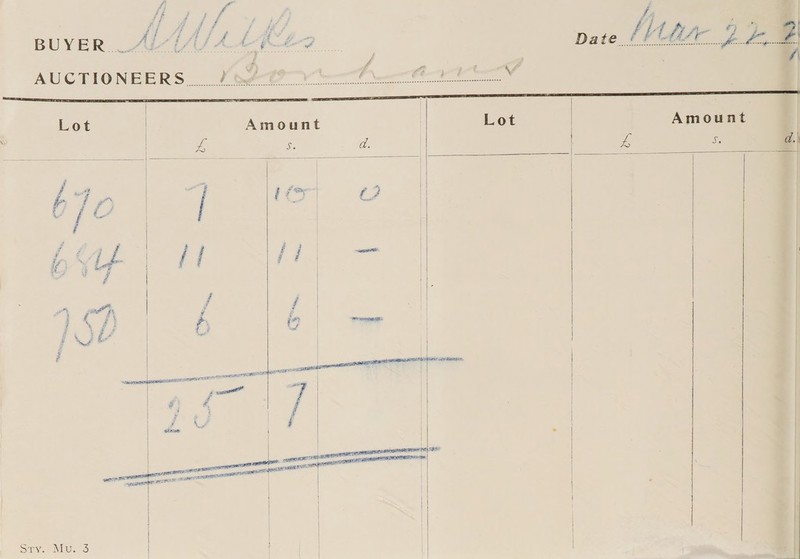 BUYER AWilkes Date Mar 22,
AUCTIONEERS Bonhams
Lot Amount Lot Amount
£ s. d. £ s. d.
670 7 10 0
684 11 11 —
750 6 6 —
25 7
STY. MU. 3